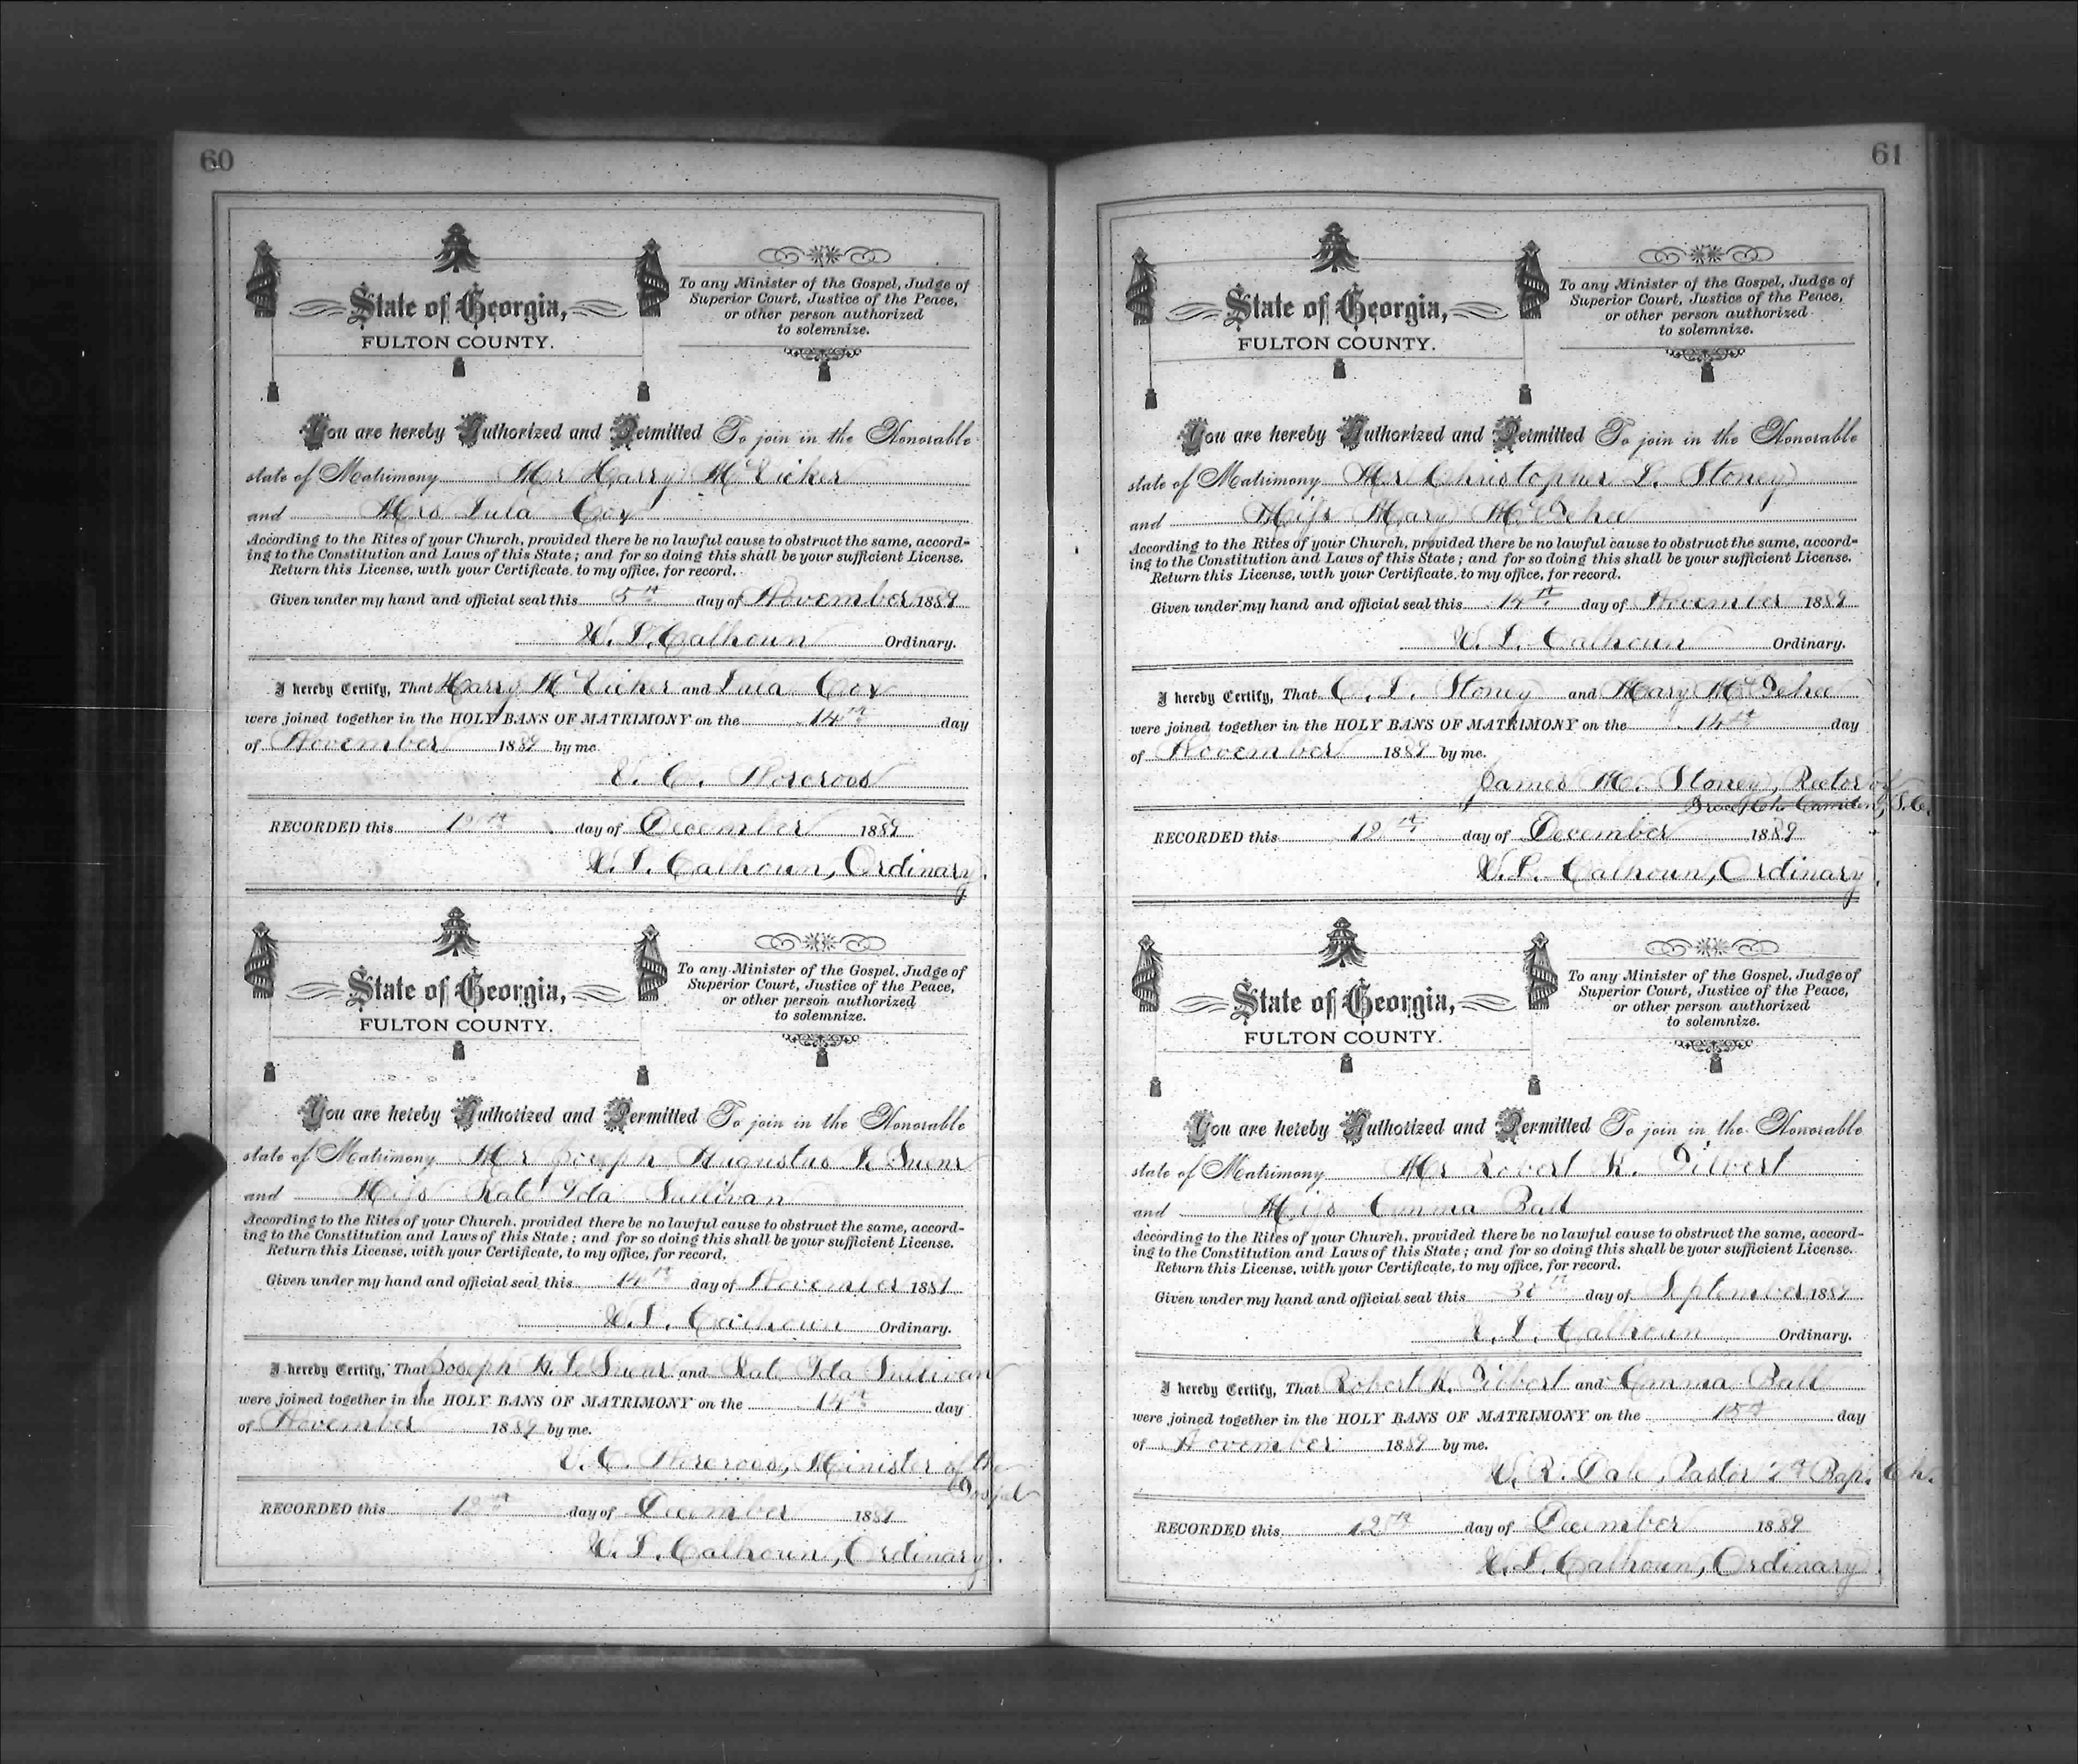 60
State of Georgia,
FULTON COUNTY.
To any Minister of the Gospel, Judge of
Superior Court, Justice of the Peace,
or other person authorized
to solemnize.
You are hereby Authorized and Permitted To join in the Honorable
state of Matrimony Mr Harry McVicker
and Mrs Lula Cox
According to the Rites of your Church, provided there be no lawful cause to obstruct the same, accord-
ing to the Constitution and Laws of this State; and for so doing this shall be your sufficient License.
Return this License, with your Certificate, to my office, for record.
Given under my hand and official seal this 5th day of November 1889
W. L. Calhoun Ordinary.
I hereby Certify, That Harry McVicker and Lula Cox
were joined together in the HOLY BANS OF MATRIMONY on the 14th day
of November 1889 by me.
V. C. Norcross
RECORDED this 12th day of December 1889
W. L. Calhoun, Ordinary.
State of Georgia,
FULTON COUNTY.
To any Minister of the Gospel, Judge of
Superior Court, Justice of the Peace,
or other person authorized
to solemnize.
You are hereby Authorized and Permitted To join in the Honorable
state of Matrimony Mr Joseph Augustus
and Miss Kate Ida Sullivan
According to the Rites of your Church, provided there be no lawful cause to obstruct the same, accord-
ing to the Constitution and Laws of this State; and for so doing this shall be your sufficient License.
Return this License, with your Certificate, to my office, for record.
Given under my hand and official seal this 14th day of November 1889
W. L. Calhoun Ordinary.
I hereby Certify, That Joseph A. and Kate Ida Sullivan
were joined together in the HOLY BANS OF MATRIMONY on the 14th day
of November 1889 by me.
V. C. Norcross, Minister of the
Gospel
RECORDED this 12th day of December 1889
W. L. Calhoun, Ordinary.
61
State of Georgia,
FULTON COUNTY.
To any Minister of the Gospel, Judge of
Superior Court, Justice of the Peace,
or other person authorized
to solemnize.
You are hereby Authorized and Permitted To join in the Honorable
state of Matrimony Mr Christopher L. Stoney
and Miss Mary McGehee
According to the Rites of your Church, provided there be no lawful cause to obstruct the same, accord-
ing to the Constitution and Laws of this State; and for so doing this shall be your sufficient License.
Return this License, with your Certificate, to my office, for record.
Given under my hand and official seal this 14th day of November 1889
W. L. Calhoun Ordinary.
I hereby Certify, That C. L. Stoney and Mary McGehee
were joined together in the HOLY BANS OF MATRIMONY on the 14th day
of November 1889 by me.
James H. Stoney, Rector of
Grace Ch. Camden, S.C.
RECORDED this 12th day of December 1889
W. L. Calhoun, Ordinary.
State of Georgia,
FULTON COUNTY.
To any Minister of the Gospel, Judge of
Superior Court, Justice of the Peace,
or other person authorized
to solemnize.
You are hereby Authorized and Permitted To join in the Honorable
state of Matrimony Mr Robert K. Gilbert
and Miss Emma Ball
According to the Rites of your Church, provided there be no lawful cause to obstruct the same, accord-
ing to the Constitution and Laws of this State; and for so doing this shall be your sufficient License.
Return this License, with your Certificate, to my office, for record.
Given under my hand and official seal this 30th day of September 1889
W. L. Calhoun Ordinary.
I hereby Certify, That Robert K. Gilbert and Emma Ball
were joined together in the HOLY BANS OF MATRIMONY on the day
of November 1889 by me.
Dale, Pastor Bap. Ch.
RECORDED this 12th day of December 1889
W. L. Calhoun, Ordinary.